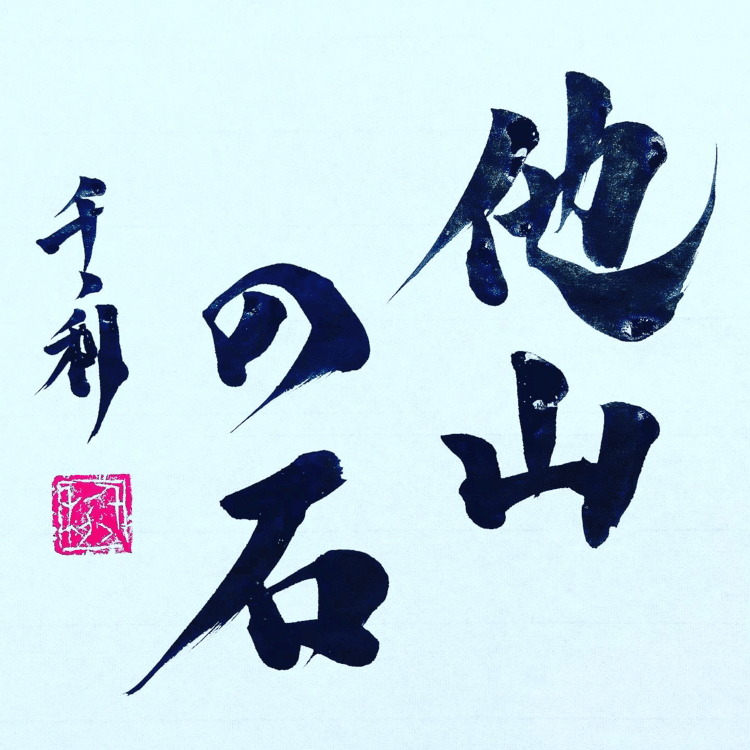 他山
の石
千利